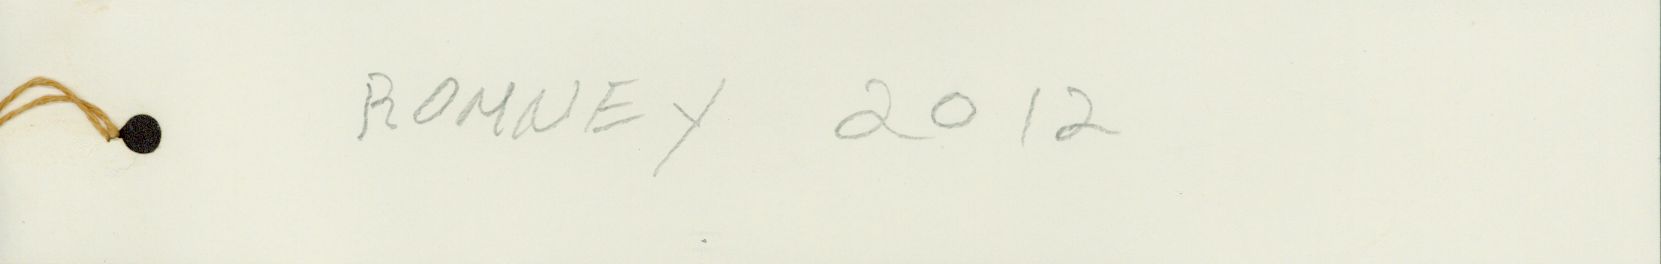 ROMNEY 2012